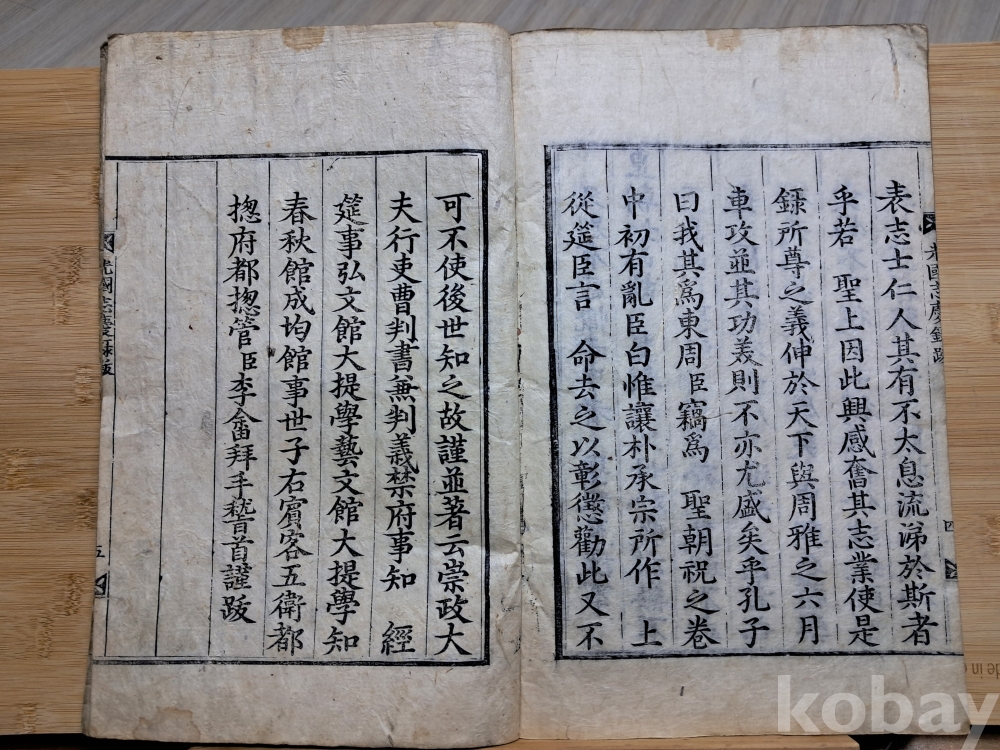 表志士仁人其有不太息流涕於斯者
乎若 聖上因此興感奮其志業使是
錄所尊之義伸於天下與周雅之六月
車攻並其功義則不亦尤盛矣乎孔子
曰我其爲東周臣竊爲 聖朝祝之卷
中初有亂臣白惟讓朴承宗所作 上
從筵臣言 命去之以彰懲勸此又不
光國志慶錄跋
四
可不使後世知之故謹並著云崇政大
夫行吏曹判書兼判義禁府事知 經
筵事弘文館大提學藝文館大提學知
春秋館成均館事世子右賓客五衛都
摠府都摠管臣李畬拜手稽首謹跋
光國志慶錄跋
五
kobay